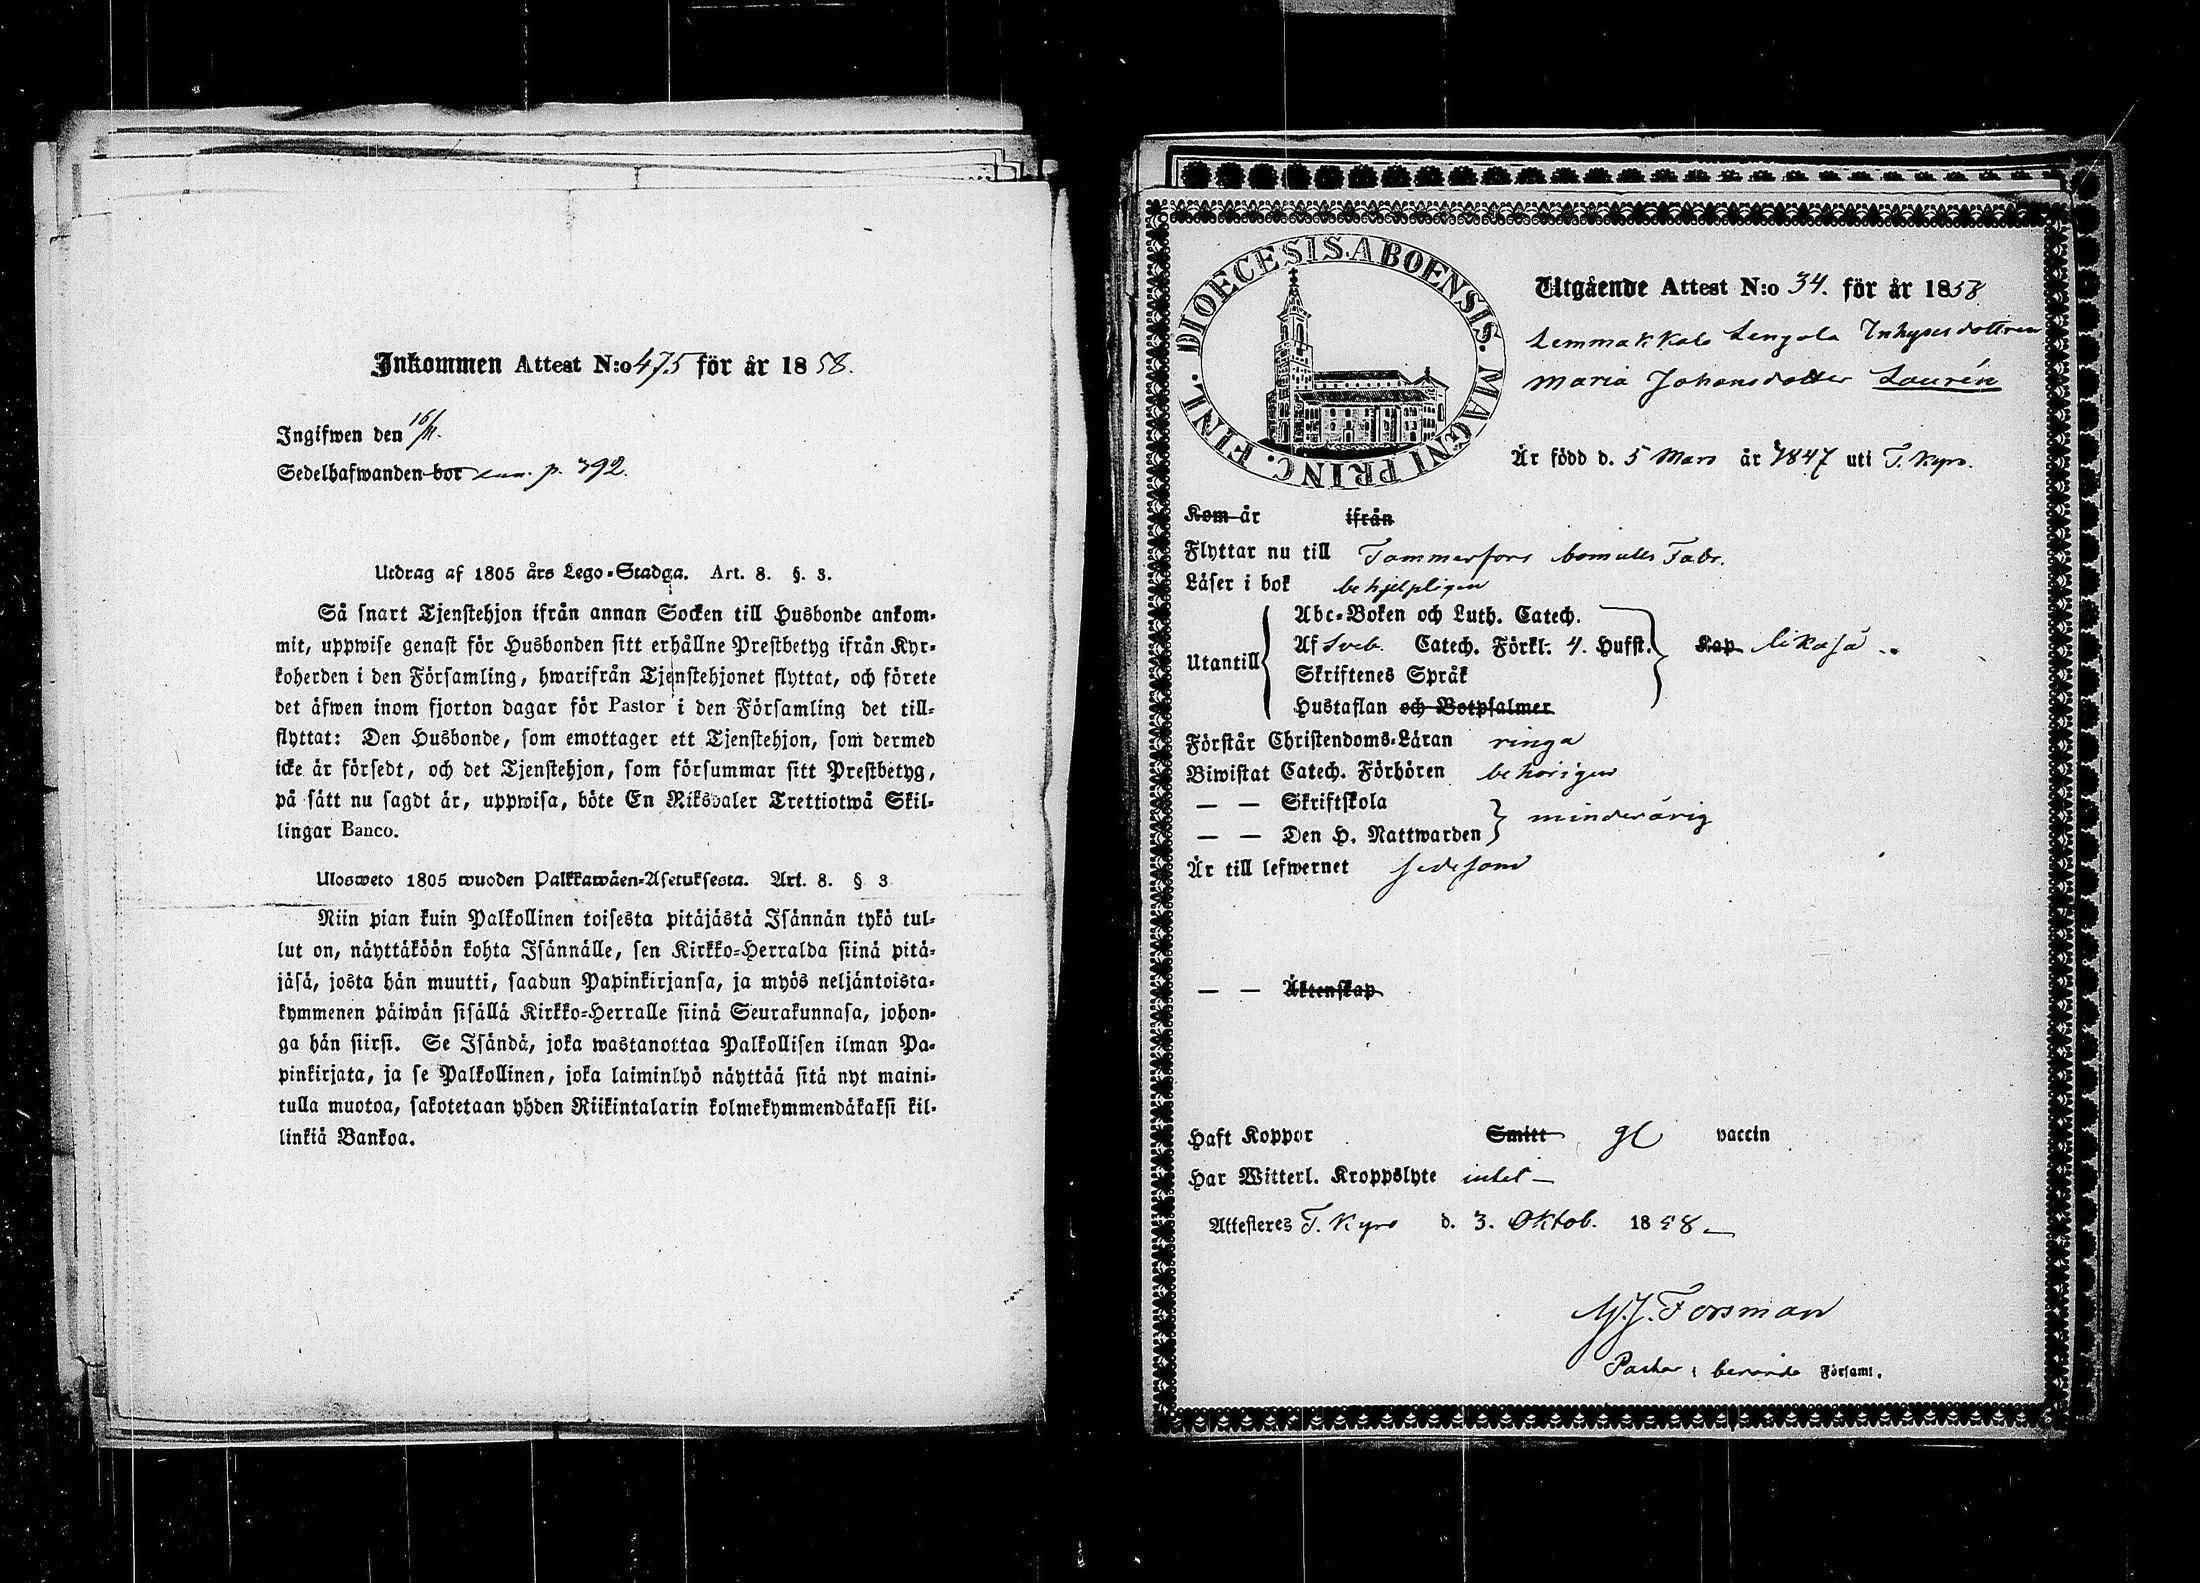 Inkommen Attest N:o 475 för år 1858.
Ingifwen den 16/11.
Sedelhafwanden bor p. 392.
Utdrag af 1805 års Lego-Stadga. Art. 8. §. 3.
Så snart Tjenstehjon ifrån annan Socken till Husbonde ankom-
mit, uppwise genast för Husbonden sitt erhållne Prestbetyg ifrån Kyr-
koherden i den Församling, hwarifrån Tjenstehjonet flyttat, och förete
det äfwen inom fjorton dagar för Pastor i den Församling det till-
flyttat: Den Husbonde, som emottager ett Tjenstehjon, som dermed
icke är försedt, och det Tjenstehjon, som försummar sitt Prestbetyg,
på sätt nu sagdt är, uppwisa, böte En Riksdaler Trettiotwå Skil-
lingar Banco.
Ulosweto 1805 wuoden Palkkawäen-Asetuksesta. Art. 8. § 3
Niin pian kuin Palkollinen toisesta pitäjästä Isännän tykö tul-
lut on, näyttäköön kohta Isännälle, sen Kirkko-Herralda siinä pitä-
jäsä, josta hän muutti, saadun Papinkirjansa, ja myös neljäntoista-
kymmenen päiwän sisällä Kirkko-Herralle siinä Seurakunnasa, johon-
ga hän siirsi. Se Isändä, joka wastanottaa Palkollisen ilman Pa-
pinkirjata, ja se Palkollinen, joka laiminlyö näyttää sitä nyt maini-
tulla muotoa, sakotetaan yhden Riikintalarin kolmekymmendäkaksi kil-
linkiä Bankoa.
FINL. DIOECESIS. ABOENSIS. MAGNI PRINC.
Utgående Attest N:o 34. för år 1858
Lemmakkala Lengola Inhyses dottren
Maria Johansdotter Laurén
Är född d. 5 Mars år 1847 uti T. Kyro.
Kom år ifrån
Flyttar nu till Tammerfors bomulls Fabr.
Läser i bok behjelpligen
Utantill
Abc-Boken och Luth. Catech.
Af Sveb. Catech. Förkl. 4. Hufst. Kap likaså
Skriftenes Språk
Hustaflan och Botpsalmer
Förstår Christendoms-Läran ringa
Biwistat Catech. Förhören behörigen
— — Skriftskola
— — Den H. Nattwarden minderårig
Är till lefwernet sedesam
— — Äktenskap
Haft Koppor Smitt vaccin
Har Witterl. Kroppslyte intet —
Attesteres T. Kyro d. 3. Oktob. 1858 —
M. J. Forsman
Pastor i berörde Församl.